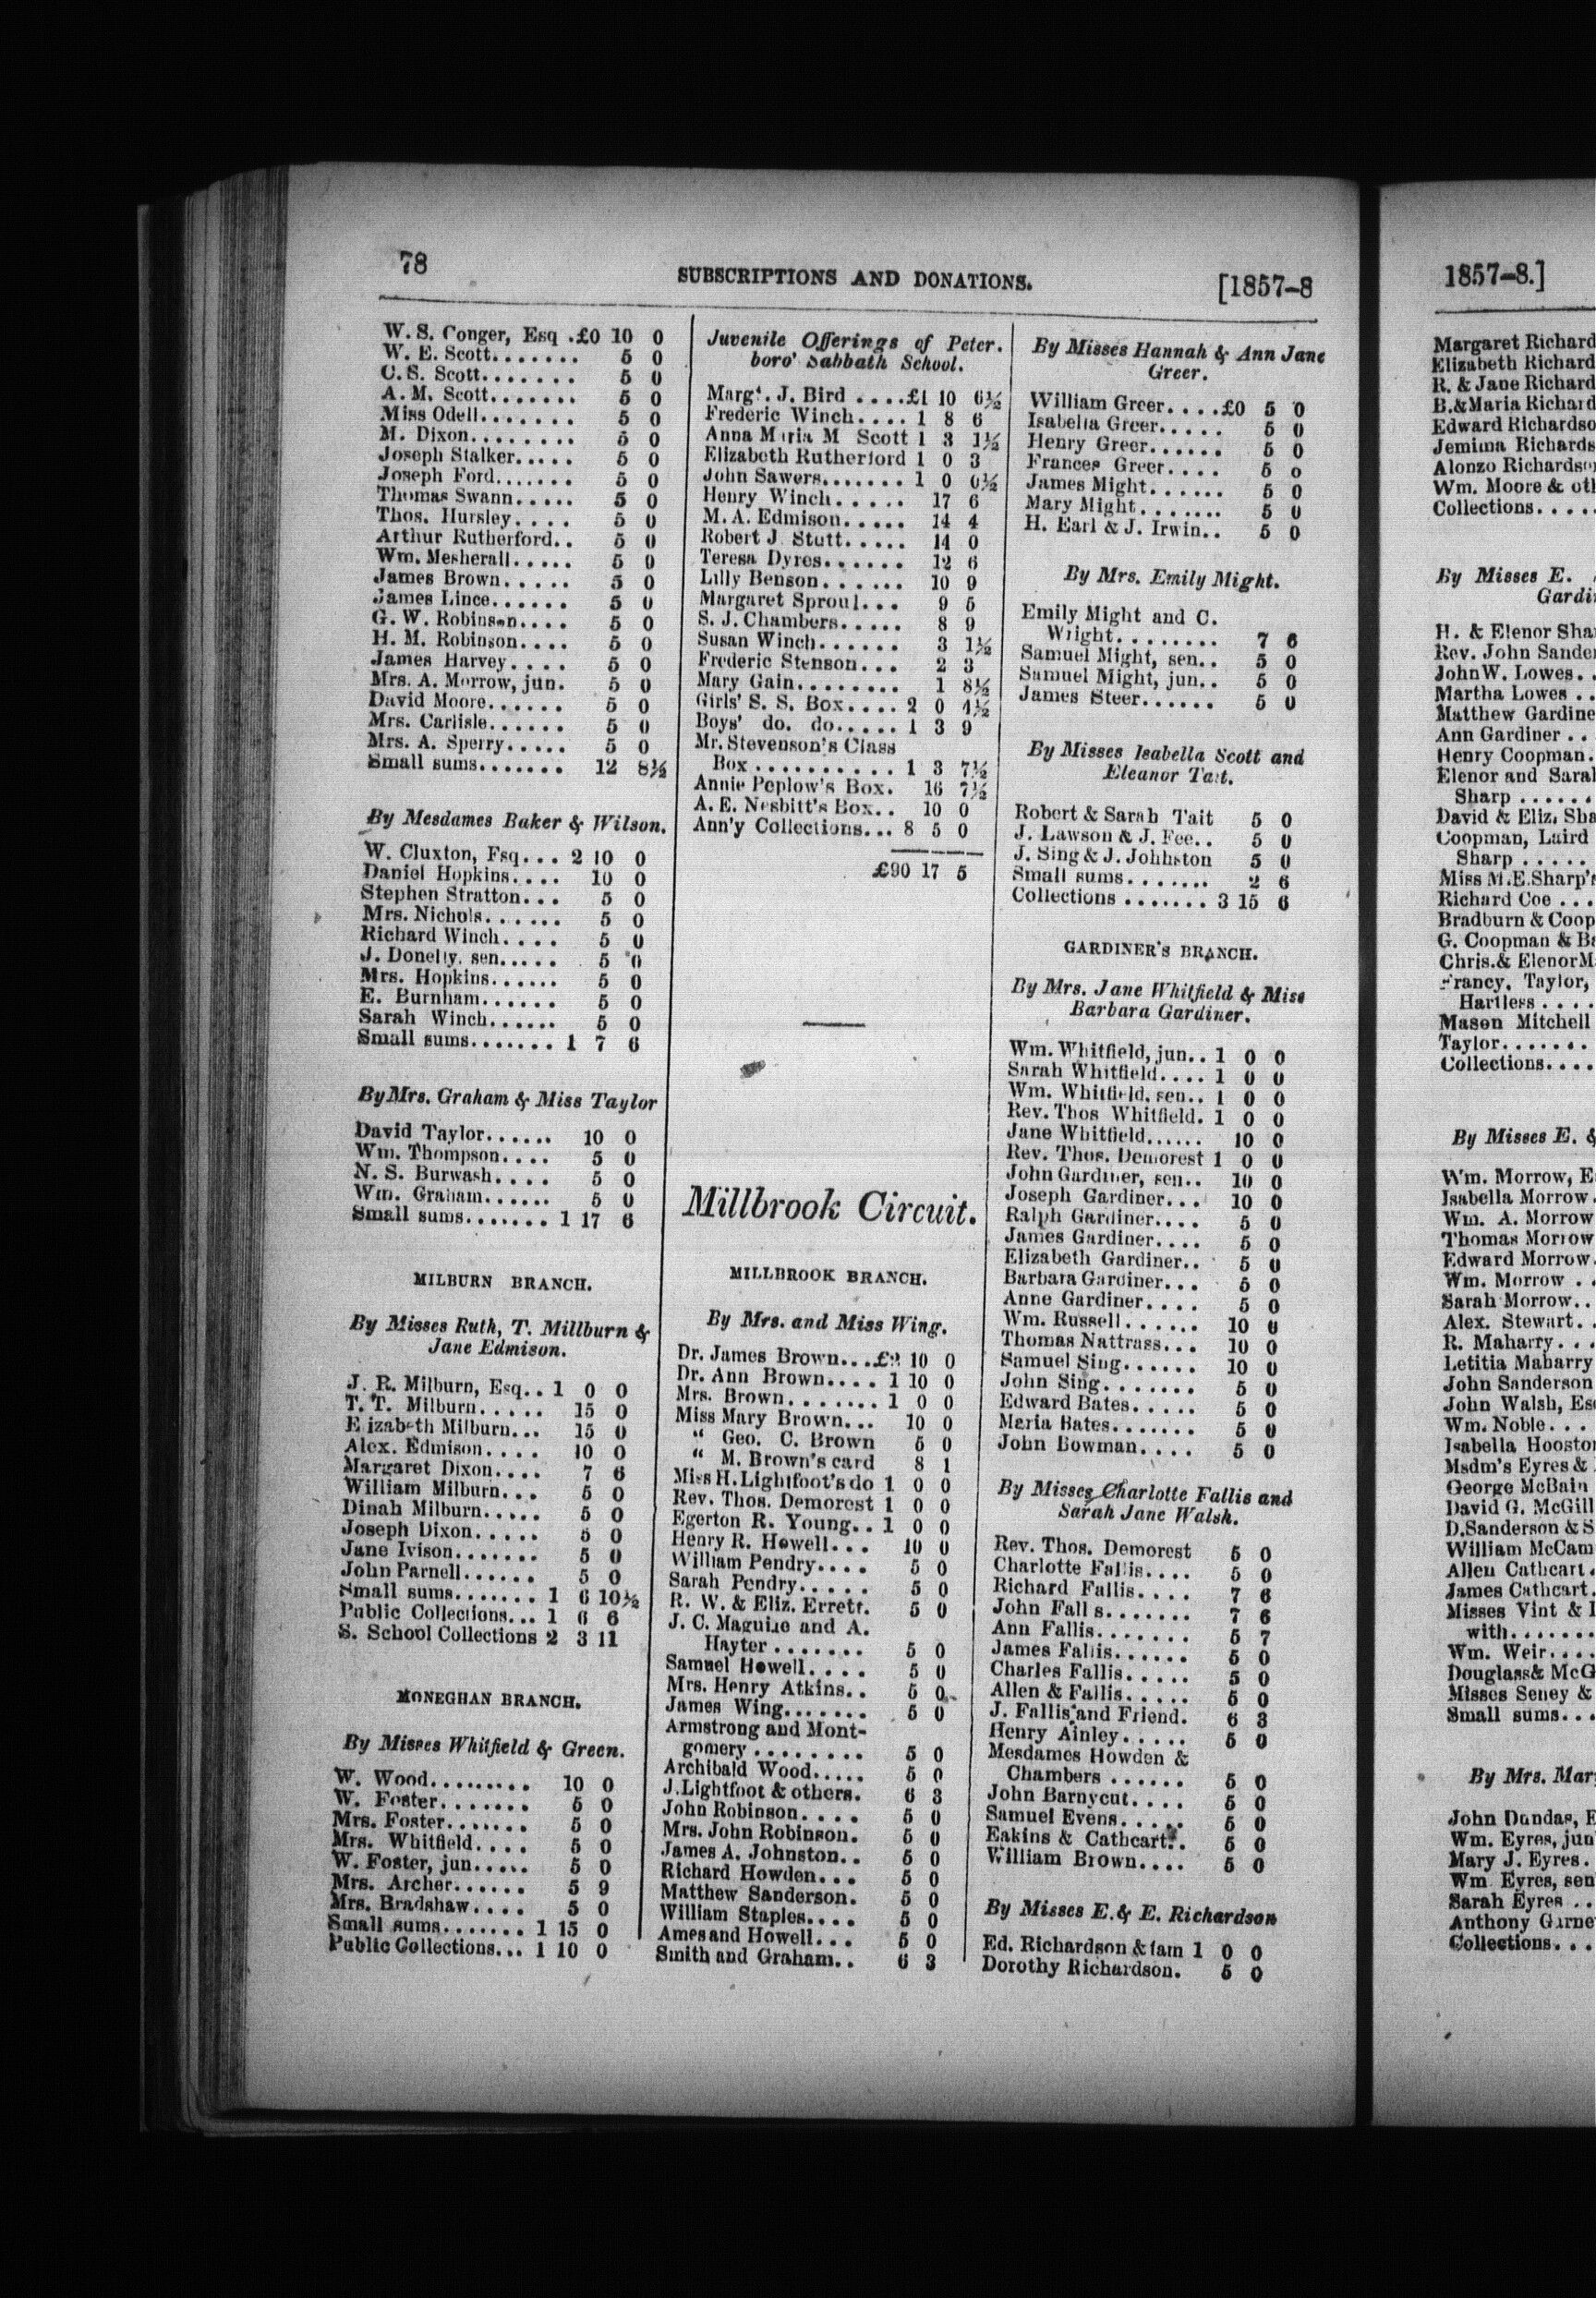 78
SUBSCRIPTIONS AND DONATIONS.
[1857-8
W. S. Conger, Esq .£0 10 0
W. E. Scott....... 5 0
C. S. Scott....... 5 0
A. M. Scott....... 5 0
Miss Odell....... 5 0
M. Dixon........ 5 0
Joseph Stalker..... 5 0
Joseph Ford....... 5 0
Thomas Swann..... 5 0
Thos. Hursley.... 5 0
Arthur Rutherford.. 5 0
Wm. Mesherall..... 5 0
James Brown..... 5 0
James Lince...... 5 0
G. W. Robinson.... 5 0
H. M. Robinson.... 5 0
James Harvey.... 5 0
Mrs. A. Morrow, jun. 5 0
David Moore...... 5 0
Mrs. Carlisle...... 5 0
Mrs. A. Sperry..... 5 0
Small sums....... 12 8½
By Mesdames Baker & Wilson.
W. Cluxton, Esq... 2 10 0
Daniel Hopkins.... 10 0
Stephen Stratton... 5 0
Mrs. Nichols...... 5 0
Richard Winch.... 5 0
J. Donelly, sen..... 5 0
Mrs. Hopkins...... 5 0
E. Burnham...... 5 0
Sarah Winch...... 5 0
Small sums....... 1 7 6
By Mrs. Graham & Miss Taylor
David Taylor...... 10 0
Wm. Thompson.... 5 0
N. S. Burwash.... 5 0
Wm. Graham...... 5 0
Small sums....... 1 17 6
MILBURN BRANCH.
By Misses Ruth, T. Millburn &
Jane Edmison.
J. R. Milburn, Esq.. 1 0 0
T. T. Milburn..... 15 0
E izabeth Milburn... 15 0
Alex. Edmison.... 10 0
Margaret Dixon.... 7 6
William Milburn... 5 0
Dinah Milburn..... 5 0
Joseph Dixon..... 5 0
Jane Ivison....... 5 0
John Parnell...... 5 0
Small sums....... 1 6 10½
Public Collections... 1 6 6
S. School Collections 2 3 11
MONEGHAN BRANCH.
By Misses Whitfield & Green.
W. Wood......... 10 0
W. Foster....... 5 0
Mrs. Foster....... 5 0
Mrs. Whitfield.... 5 0
W. Foster, jun..... 5 0
Mrs. Archer...... 5 9
Mrs. Bradshaw.... 5 0
Small sums....... 1 15 0
Public Collections... 1 10 0
Juvenile Offerings of Peter.
boro' Sabbath School.
Marg't. J. Bird ....£1 10 6½
Frederic Winch.... 1 8 6
Anna Maria M Scott 1 3 1½
Elizabeth Rutherford 1 0 3
John Sawers....... 1 0 0½
Henry Winch..... 17 6
M. A. Edmison..... 14 4
Robert J. Stutt..... 14 0
Teresa Dyres...... 12 6
Lilly Benson...... 10 9
Margaret Sproul... 9 5
S. J. Chambers..... 8 9
Susan Winch...... 3 1½
Frederic Stenson... 2 3
Mary Gain........ 1 8½
Girls' S. S. Box.... 2 0 4½
Boys' do. do..... 1 3 9
Mr. Stevenson's Class
Box .......... 1 3 7½
Annie Peplow's Box. 16 7½
A. E. Nesbitt's Box.. 10 0
Ann'y Collections... 8 5 0
£90 17 5
Millbrook Circuit.
MILLBROOK BRANCH.
By Mrs. and Miss Wing.
Dr. James Brown...£2 10 0
Dr. Ann Brown.... 1 10 0
Mrs. Brown....... 1 0 0
Miss Mary Brown... 10 0
" Geo. C. Brown 5 0
" M. Brown's card 8 1
Miss H. Lightfoot's do 1 0 0
Rev. Thos. Demorest 1 0 0
Egerton R. Young.. 1 0 0
Henry R. Howell... 10 0
William Pendry.... 5 0
Sarah Pendry..... 5 0
R. W. & Eliz. Errett. 5 0
J. C. Maguire and A.
Hayter ....... 5 0
Samuel Howell.... 5 0
Mrs. Henry Atkins.. 5 0
James Wing....... 5 0
Armstrong and Mont-
gomery ........ 5 0
Archibald Wood..... 5 0
J. Lightfoot & others. 6 3
John Robinson.... 5 0
Mrs. John Robinson. 5 0
James A. Johnston.. 5 0
Richard Howden... 5 0
Matthew Sanderson. 5 0
William Staples.... 5 0
Ames and Howell... 5 0
Smith and Graham.. 6 3
By Misses Hannah & Ann Jane
Greer.
William Greer....£0 5 0
Isabella Greer..... 5 0
Henry Greer...... 5 0
Frances Greer.... 5 0
James Might...... 5 0
Mary Might....... 5 0
H. Earl & J. Irwin.. 5 0
By Mrs. Emily Might.
Emily Might and C.
Wright........ 7 6
Samuel Might, sen.. 5 0
Samuel Might, jun.. 5 0
James Steer...... 5 0
By Misses Isabella Scott and
Eleanor Tait.
Robert & Sarah Tait 5 0
J. Lawson & J. Fee.. 5 0
J. Sing & J. Johhston 5 0
Small sums....... 2 6
Collections ....... 3 15 6
GARDINER'S BRANCH.
By Mrs. Jane Whitfield & Miss
Barbara Gardiner.
Wm. Whitfield, jun.. 1 0 0
Sarah Whitfield.... 1 0 0
Wm. Whitfield, sen.. 1 0 0
Rev. Thos Whitfield. 1 0 0
Jane Whitfield...... 10 0
Rev. Thos. Demorest 1 0 0
John Gardiner, sen.. 10 0
Joseph Gardiner... 10 0
Ralph Gardiner.... 5 0
James Gardiner.... 5 0
Elizabeth Gardiner.. 5 0
Barbara Gardiner... 5 0
Anne Gardiner.... 5 0
Wm. Russell...... 10 0
Thomas Nattrass... 10 0
Samuel Sing...... 10 0
John Sing........ 5 0
Edward Bates..... 5 0
Maria Bates....... 5 0
John Bowman.... 5 0
By Misses Charlotte Fallis and
Sarah Jane Walsh.
Rev. Thos. Demorest 5 0
Charlotte Fallis.... 5 0
Richard Fallis.... 7 6
John Fall s....... 7 6
Ann Fallis....... 5 7
James Fallis...... 5 0
Charles Fallis..... 5 0
Allen & Fallis..... 5 0
J. Fallis and Friend. 6 3
Henry Ainley..... 5 0
Mesdames Howden &
Chambers ...... 5 0
John Barnycut.... 5 0
Samuel Evens..... 5 0
Eakins & Cathcart.. 5 0
William Brown.... 5 0
By Misses E. & E. Richardson
Ed. Richardson & fam 1 0 0
Dorothy Richardson. 5 0
1857-8.]
Margaret Richard
Elizabeth Richard
R. & Jane Richard
B. & Maria Richard
Edward Richardso
Jemima Richards
Alonzo Richardson
Wm. Moore & oth
Collections....
By Misses E.
Gardi
H. & Elenor Sha
Rev. John Sande
John W. Lowes..
Martha Lowes ..
Matthew Gardine
Ann Gardiner ..
Henry Coopman.
Elenor and Sara
Sharp ......
David & Eliz. Sha
Coopman, Laird
Sharp .....
Miss M. E. Sharp's
Richard Coe ...
Bradburn & Coop
G. Coopman & B
Chris. & Elenor M
Francy, Taylor,
Hartless ....
Mason Mitchell
Taylor.......
Collections....
By Misses E. &
Wm. Morrow, E
Isabella Morrow.
Wm. A. Morrow
Thomas Morrow
Edward Morrow.
Wm. Morrow ..
Sarah Morrow..
Alex. Stewart..
R. Maharry...
Letitia Maharry
John Sanderson
John Walsh, Es
Wm. Noble...
Isabella Hoosto
Msdm's Eyres &
George McBain
David G. McGill
D. Sanderson & S
William McCam
Allen Cathcart.
James Cathcart.
Misses Vint &
with.......
Wm. Weir....
Douglass & McG
Misses Seney &
Small sums...
By Mrs. Mar
John Dundas, E
Wm. Eyres, jun
Mary J. Eyres.
Wm Eyres, sen
Sarah Eyres ..
Anthony Garne
Collections...